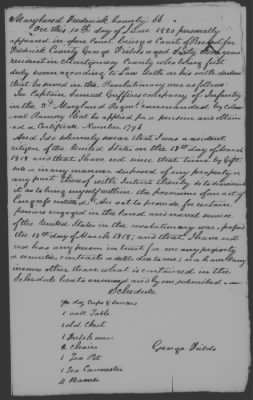 Maryland Frederick County ss.
On this 10th day of June 1820 personally
appeared in open Court being a Court of Record for
Frederick County George Fields aged Sixty three years
resident in Montgomery County who being first
duly sworn according to Law doth on his oath declare
that he served in the Revolutionary war as follows
In Captain Samuel Griffith's company of Infantry
in the 3d Maryland Regmt commanded by Colonel
Ramsey that he applied for a pension and obtain
ed a Certificate Number 1798
And I do solemnly swear that I was a resident
citizen of the United States on the 18th day of March
1818 and that I have not since that time by Gift
sale or in any manner disposed of my property or
any part thereof with intent thereby so to diminish
it as to bring myself within the provisions of an act of
Congress entitled "An act to provide for certain
persons engaged in the land and naval service
of the United States in the revolutionary war" passed
the 18th day of March 1818, and that I have not
nor has any person in trust for me any property
or securities, contracts or debts due to me; nor have I any
income other than what is contained in the
Schedule hereto annexed and by me subscribed
Schedule
cups & saucers
1 Table
1 old Chest
1 Dutch oven
2 Chairs
1 Tea Pot
1 Tea Cannister
4 Barrels
George Fields